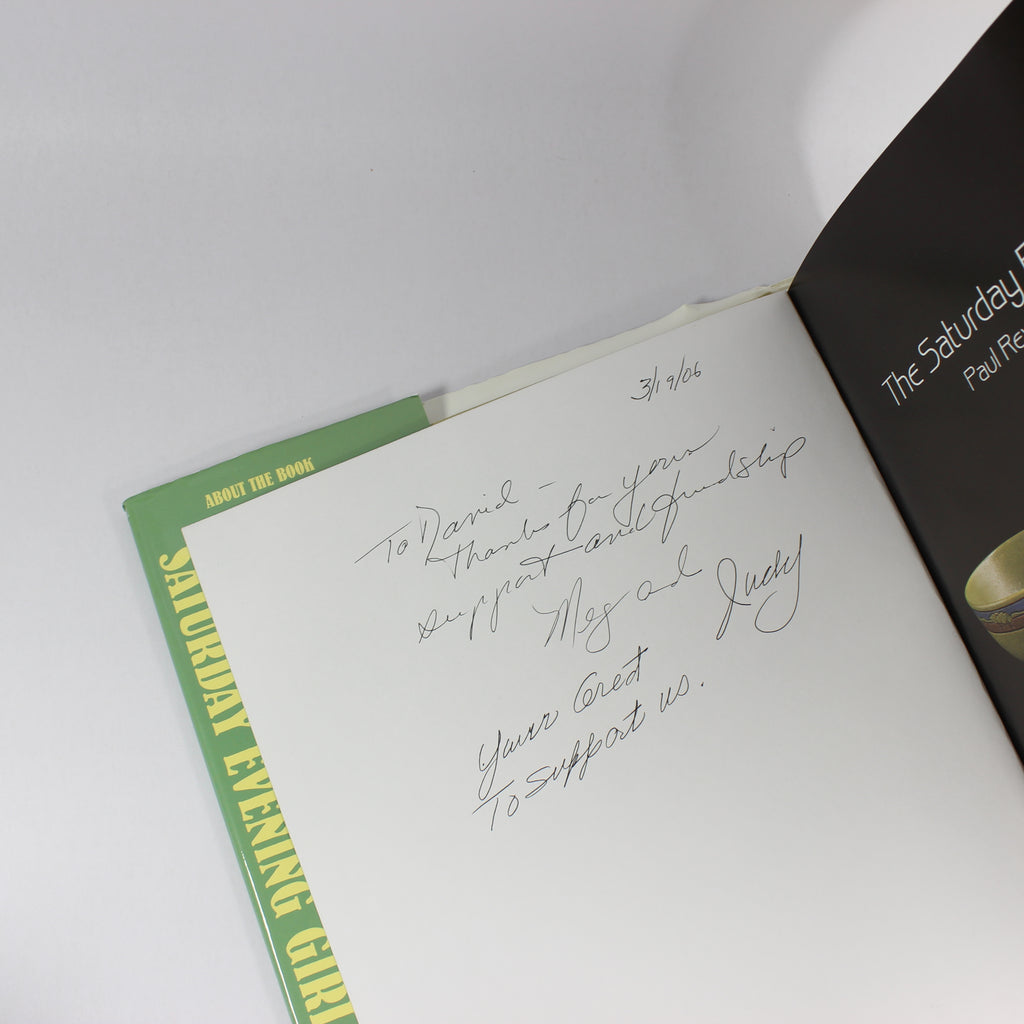 3/19/06
To David -
thanks for your
support and friendship
Meg and Judy
Great
To support us.
ABOUT THE BOOK
SATURDAY EVENING GIRL
The Saturday
Paul Rev